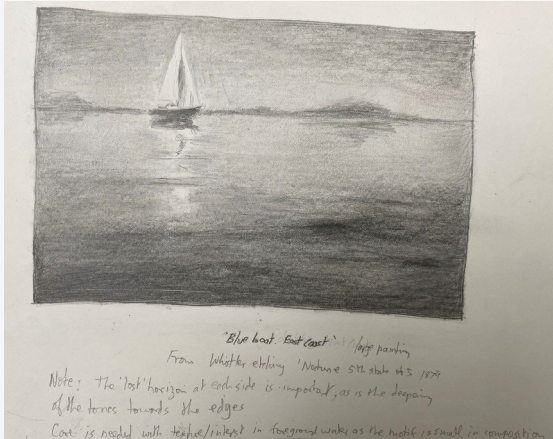 'Blue boat. East coast' large painting
From Whistler etching 'Nocturne 5th state of 5 1879
Note: The 'lost' horizon at each side is important, as is the deepening
of the tones towards the edges
Care is needed with texture/interest in foreground water as the motif is small in composition